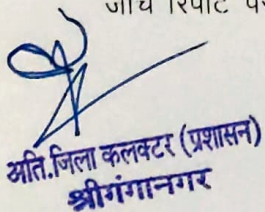 जांच रिपोर्ट
अति.जिला कलक्टर (प्रशासन)
श्रीगंगानगर